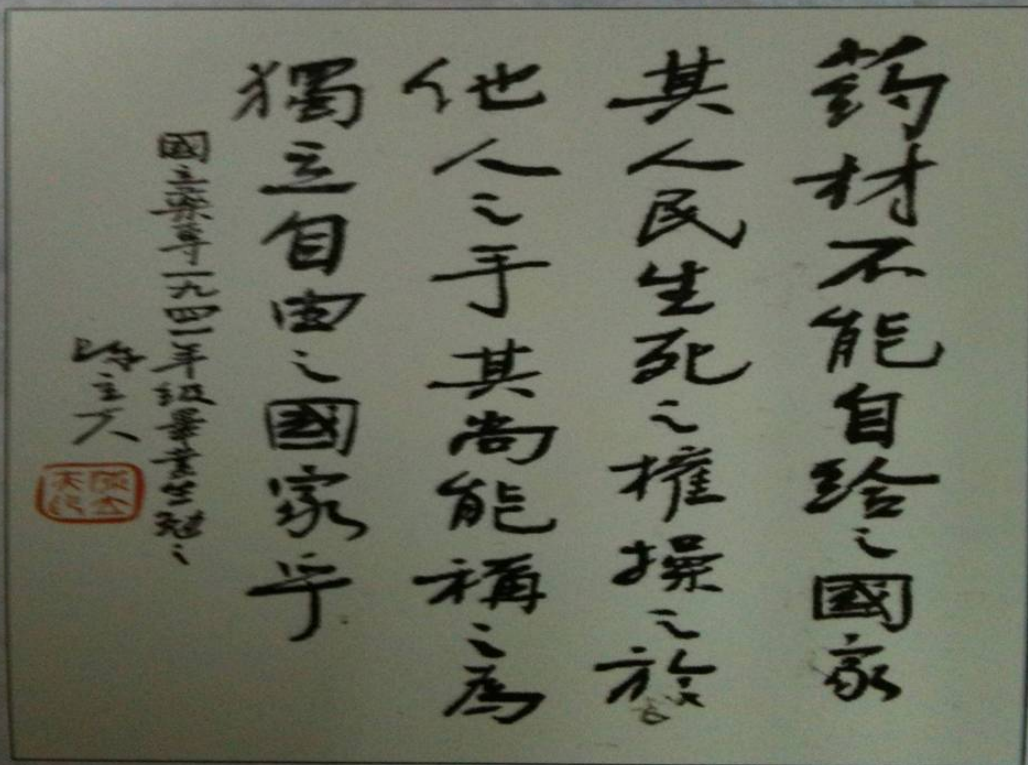 药材不能自给之國家
其人民生死之權操之於
他人之手其尚能稱之為
獨立自由之國家乎
國立藥專一九四一年級畢業生勉之
陳立夫